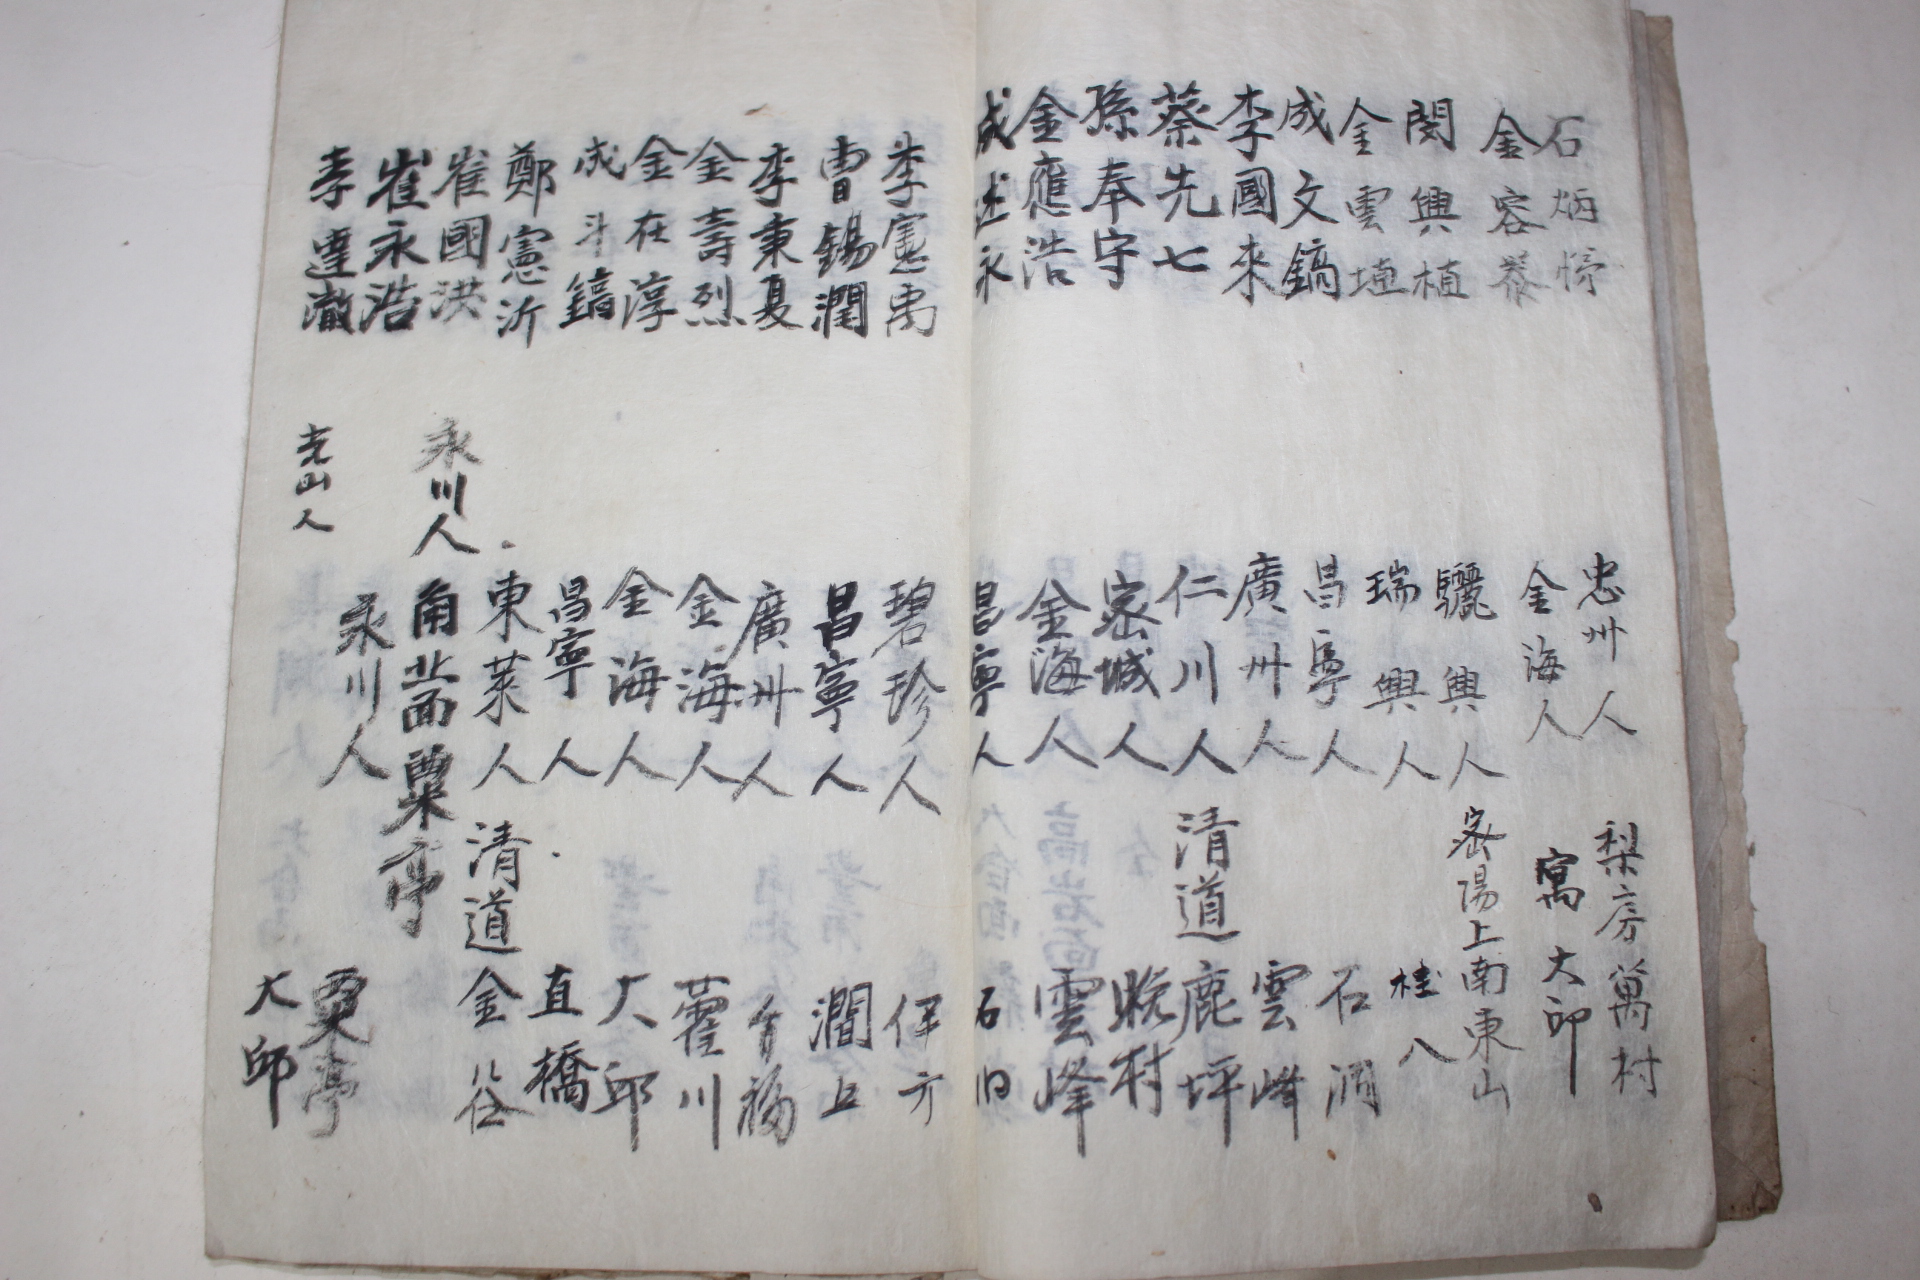 石炳 忠州人 梨房萬村
金容 金海人 寓大邱
閔興植 驪興人 密陽上南東山
金雲 瑞興人 桂八
成文鎬 昌寧人 石洞
李國來 廣州人 雲峰
蔡先七 仁川人 清道鹿坪
孫奉守 密城人 晩村
金應浩 金海人 雲峰
成述永 昌寧人 石旧
李憲禹 碧珍人 伊方
曺錫潤 昌寧人 澗上
李秉夏 廣州人
金壽烈 金海人 藿川
金在淳 金海人 大邱
成斗鎬 昌寧人 直橋
鄭憲沂 東萊人 清道金谷
崔國洪 永川人 角北面粟亭
崔永浩 永川人 粟亭
李達澈 人 大邱